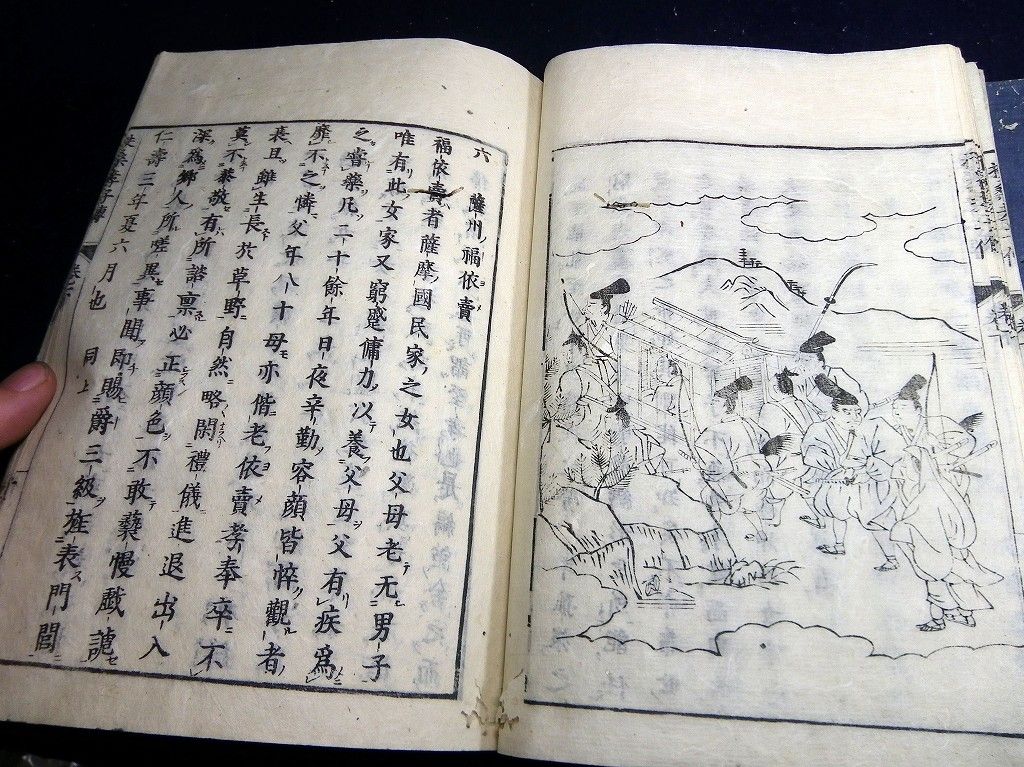 六 薩州福依賣
福依賣者薩摩國民家之女也父母老无男子
唯有此女家又窮蹙傭力以養父母父有疾為
之嘗藥凡二十餘年日夜辛勤容顏皆悴觀者
靡不之憐父年八十母亦偕老依賣孝奉卒不
衰且雖生長於草野自然略閑禮儀進退出入
莫不恭敬有所諮稟必正顏色不敢褻慢戲謔
深為鄉人所嗟異事聞即賜爵三級旌表門閭
仁壽三年夏六月也 同上